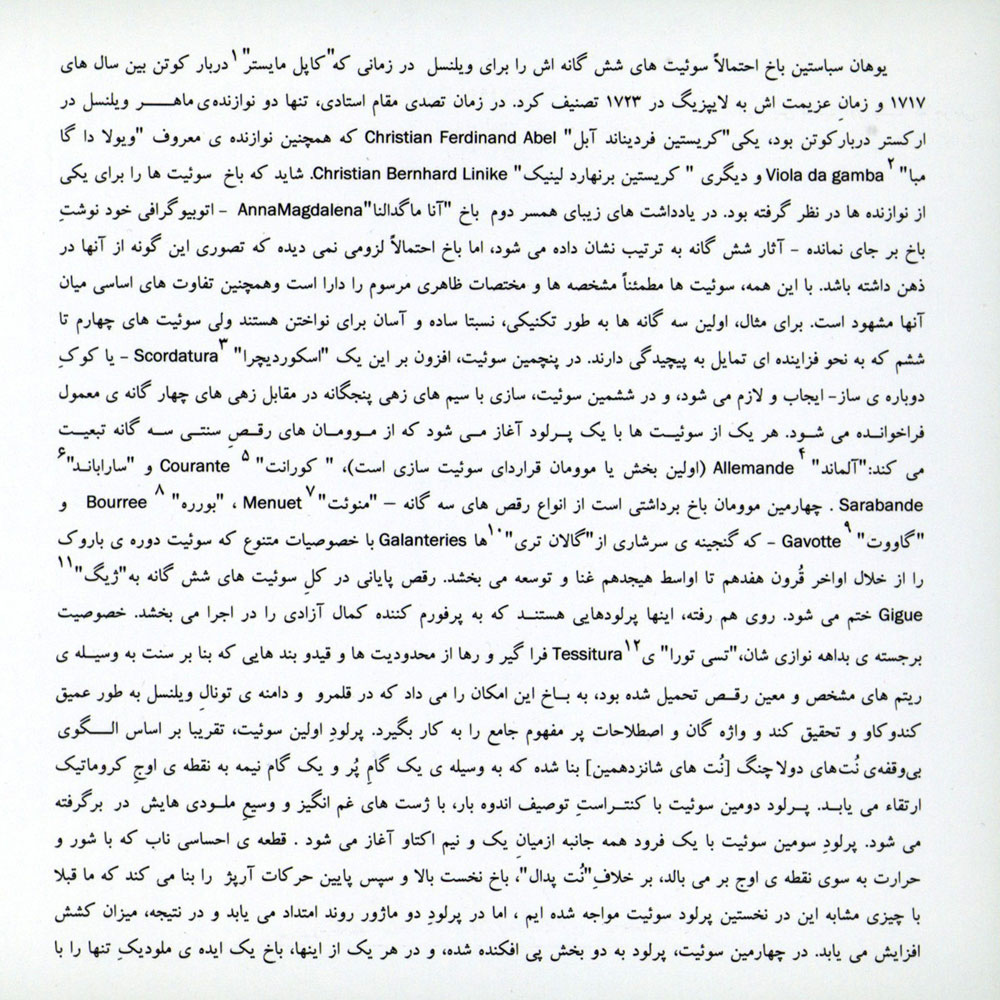 یوهان سباستین باخ احتمالاً سوئیت های شش گانه اش را برای ویلنسل در زمانی که"کاپل مایستر"۱دربار کوتن بین سال های
۱۷۱۷ و زمانِ عزیمت اش به لایپزیگ در ۱۷۲۳ تصنیف کرد. در زمان تصدی مقام استادی، تنها دو نوازنده‌ی ماهـــر ویلنسل در
ارکستر دربارکوتن بود، یکی"کریستین فردیناند آبل" Christian Ferdinand Abel که همچنین نوازنده ی معروف "ویولا دا گا
مبا" ۲ Viola da gamba و دیگری " کریستین برنهارد لینیک" Christian Bernhard Linike. شاید که باخ سوئیت ها را برای یکی
از نوازنده ها در نظر گرفته بود. در یادداشت های زیبای همسر دوم باخ "آنا ماگدالنا"AnnaMagdalena - اتوبیوگرافی خود نوشتِ
باخ بر جای نمانده - آثار شش گانه به ترتیب نشان داده می شود، اما باخ احتمالاً لزومی نمی دیده که تصوری این گونه از آنها در
ذهن داشته باشد. با این همه، سوئیت ها مطمئناً مشخصه ها و مختصات ظاهری مرسوم را دارا است وهمچنین تفاوت های اساسی میان
آنها مشهود است. برای مثال، اولین سه گانه ها به طور تکنیکی، نسبتا ساده و آسان برای نواختن هستند ولی سوئیت های چهارم تا
ششم که به نحو فزاینده ای تمایل به پیچیدگی دارند. در پنچمین سوئیت، افزون بر این یک "اسکوردیچرا" ۳Scordatura - یا کوکِ
دوباره ی ساز- ایجاب و لازم می شود، و در ششمین سوئیت، سازی با سیم های زهی پنجگانه در مقابل زهی های چهار گانه ی معمول
فراخوانـده می شـود. هر یک از سوئیـت ها با یک پـرلود آغاز مـی شود که از مـوومـان های رقـصِ سنتـی سـه گانه تبعیـت
می کند:"آلماند" ۴ Allemande (اولین بخش یا موومان قراردای سوئیت سازی است)، " کورانت" ۵ Courante و "ساراباند"۶
Sarabande . چهارمین موومان باخ برداشتی است از انواع رقص های سه گانه – "منوئت"۷ Menuet ، "بورره" ۸ Bourree و
"گاووت" ۹ Gavotte - که گنجینه ی سرشاری از"گالان تری"۱۰ها Galanteries با خصوصیات متنوع که سوئیت دوره ی باروک
را از خلال اواخر قُرون هفدهم تا اواسط هیجدهم غنا و توسعه می بخشد. رقص پایانی در کلِ سوئیت های شش گانه به"ژیگ"۱۱
Gigue ختم می شود. روی هم رفته، اینها پرلودهایی هستنـد که به پرفورم کننده کمال آزادی را در اجرا می بخشد. خصوصیت
برجسته ی بداهه نوازی شان،"تسی تورا" ی۱۲Tessitura فرا گیر و رها از محدودیت ها و قیدو بند هایی که بنا بر سنت به وسیله ی
ریتم های مشخص و معین رقـص تحمیل شده بود، به بـاخ این امکان را می داد که در قلمرو و دامنه ی تونالِ ویلنسل به طور عمیق
کندوکاو و تحقیق کند و واژه گان و اصطلاحات پر مفهوم جامع را به کار بگیرد. پرلودِ اولین سوئیت، تقریبا بر اساس الـــگوی
بی‌وقفه‌ی نُت‌های دولاچنگ [نُت های شانزدهمین] بنا شده که به وسیله ی یک گامِ پُر و یک گام نیمه به نقطه ی اوجِ کروماتیک
ارتقاء می یابـد. پـرلود دومین سوئیت با کنتـراستِ توصیف اندوه بار، با ژست های غم انگیز و وسیعِ ملـودی هایش در برگرفته
می شود. پرلودِ سومین سوئیت با یک فرود همه جانبه ازمیانِ یک و نیم اکتاو آغاز می شود . قطعه ی احساسی ناب که با شور و
حرارت به سوی نقطه ی اوج بر می بالد، بر خلافِ"نُت پدال"، باخ نخست بالا و سپس پایین حرکات آرپژ را بنا می کند که ما قبلا
با چیزی مشابه این در نخستین پرلود سوئیت مواجه شده ایم ، اما در پرلودِ دو ماژور روند امتداد می یابد و در نتیجه، میزان کشش
افزایش می یابد. در چهارمین سوئیت، پرلود به دو بخش پی افکنده شده، و در هر یک از اینها، باخ یک ایده ی ملودیکِ تنها را با